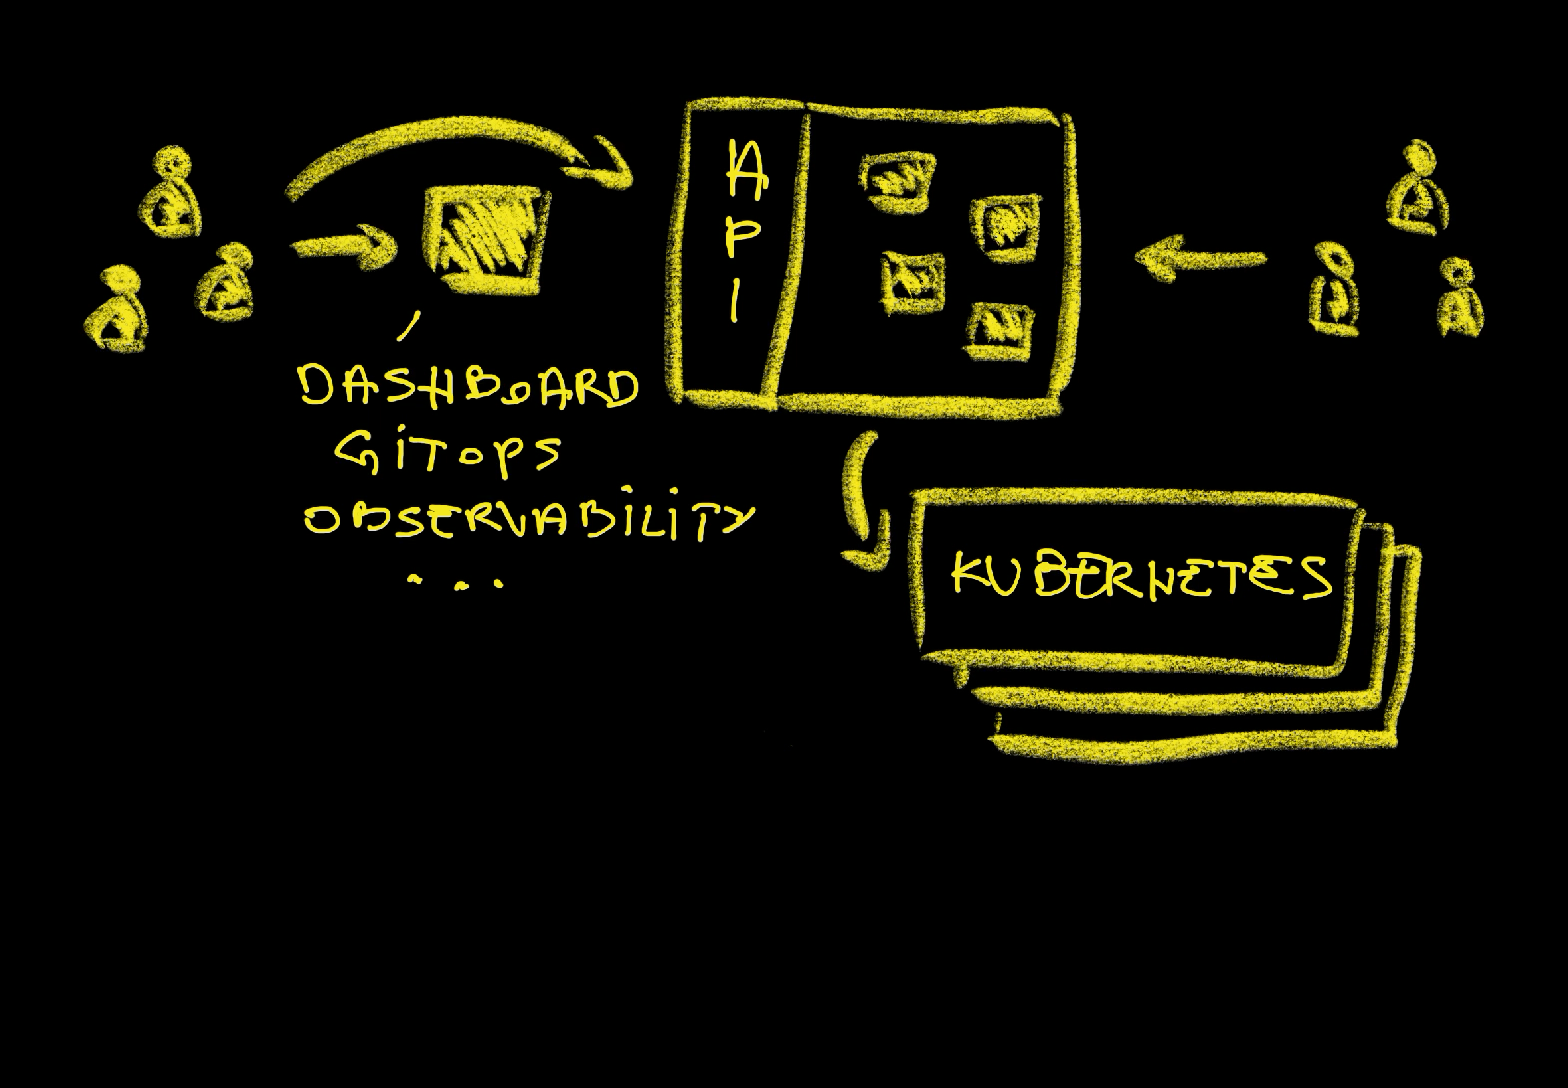 API
DASHBOARD
GiTOPS
OBSERVABiLiTY
...
KUBERNETES